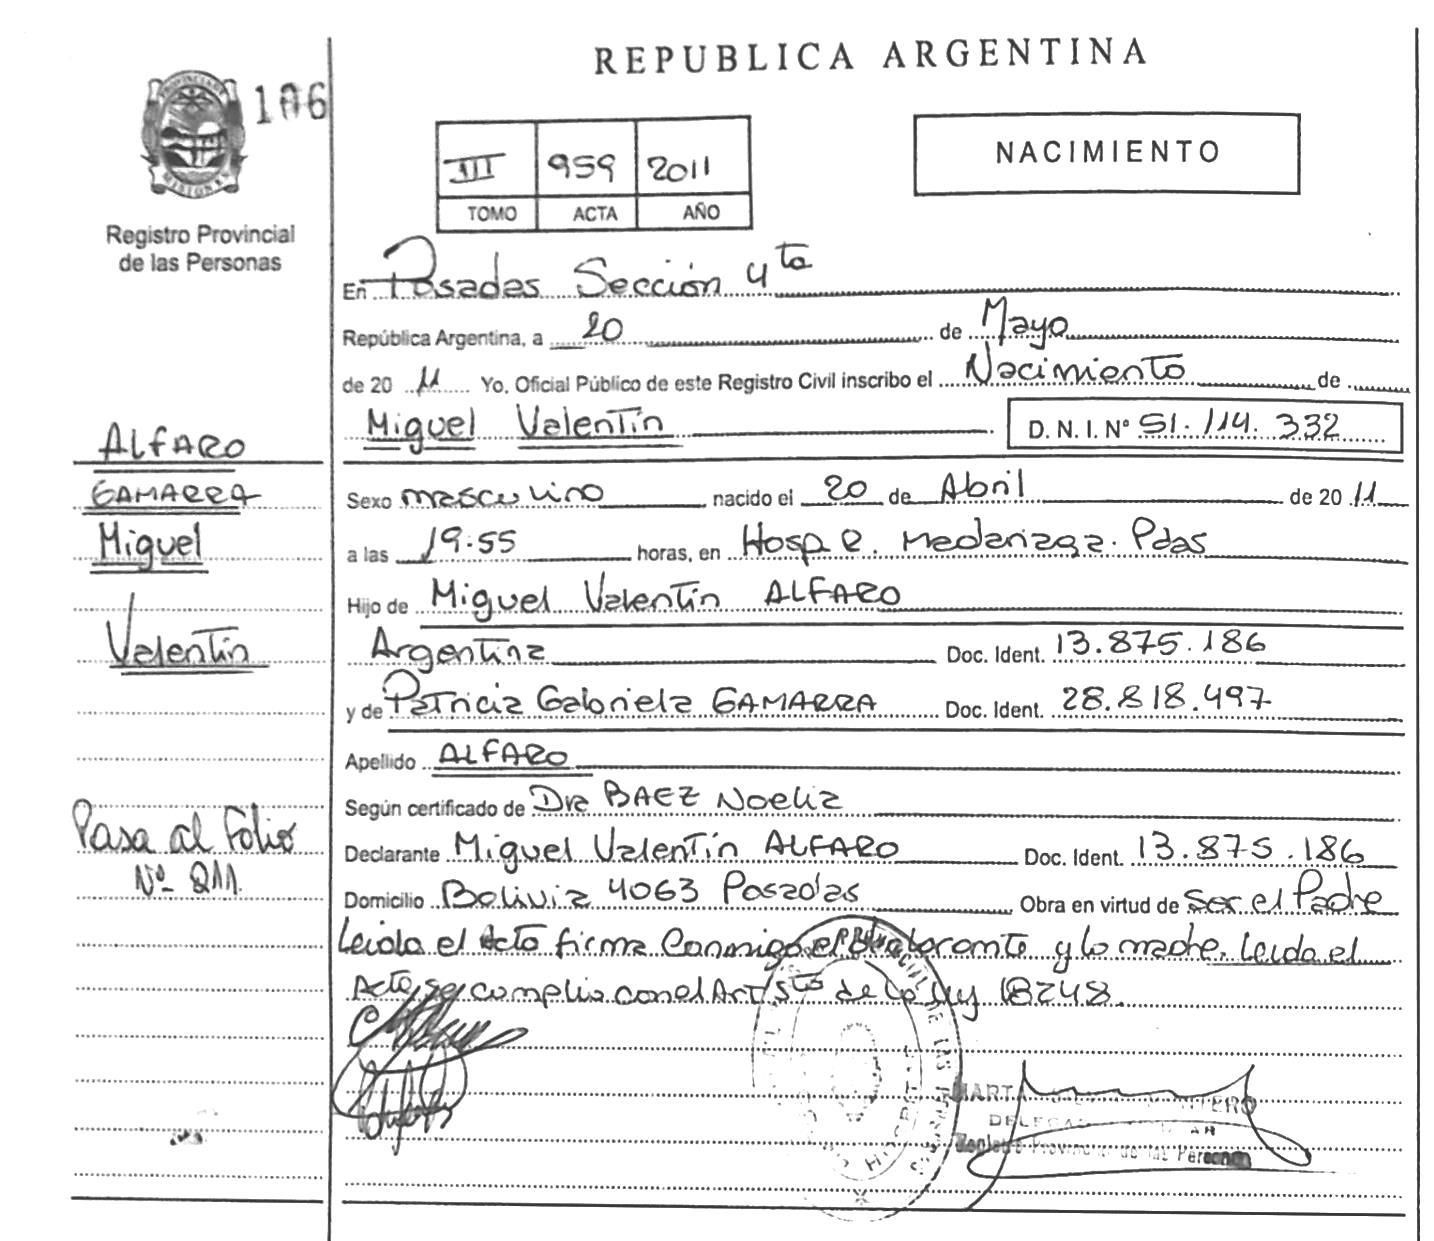 REPUBLICA ARGENTINA
106
PROVINCIA DE
MISIONES
Registro Provincial
de las Personas
III 959 2011
TOMO ACTA AÑO
NACIMIENTO
En Posadas Sección 4ta
República Argentina, a 20 de Mayo
de 2011 Yo, Oficial Público de este Registro Civil inscribo el Nacimiento de
Miguel Valentín D. N. I. N° 51.114.332
Sexo masculino nacido el 20 de Abril de 2011
a las 19.55 horas, en Hosp R. Madariaga. Pdas
Hijo de Miguel Valentín ALFARO
Argentina Doc. Ident. 13.875.186
y de Patricia Gabriela GAMARRA Doc. Ident. 28.818.497
Apellido ALFARO
Según certificado de Dra BAEZ Noelia
Declarante Miguel Valentín ALFARO Doc. Ident. 13.875.186
Domicilio Bolivia 4063 Posadas Obra en virtud de ser el Padre
Leida el Acta firma Conmigo el Declarante y la madre. Leida el
Acta se cumplio con el Art 5to de la Ley 18248.
ALFARO
GAMARRA
Miguel
Valentín
Pasa al Folio
Nº 211.
Registro Provincial de las Personas